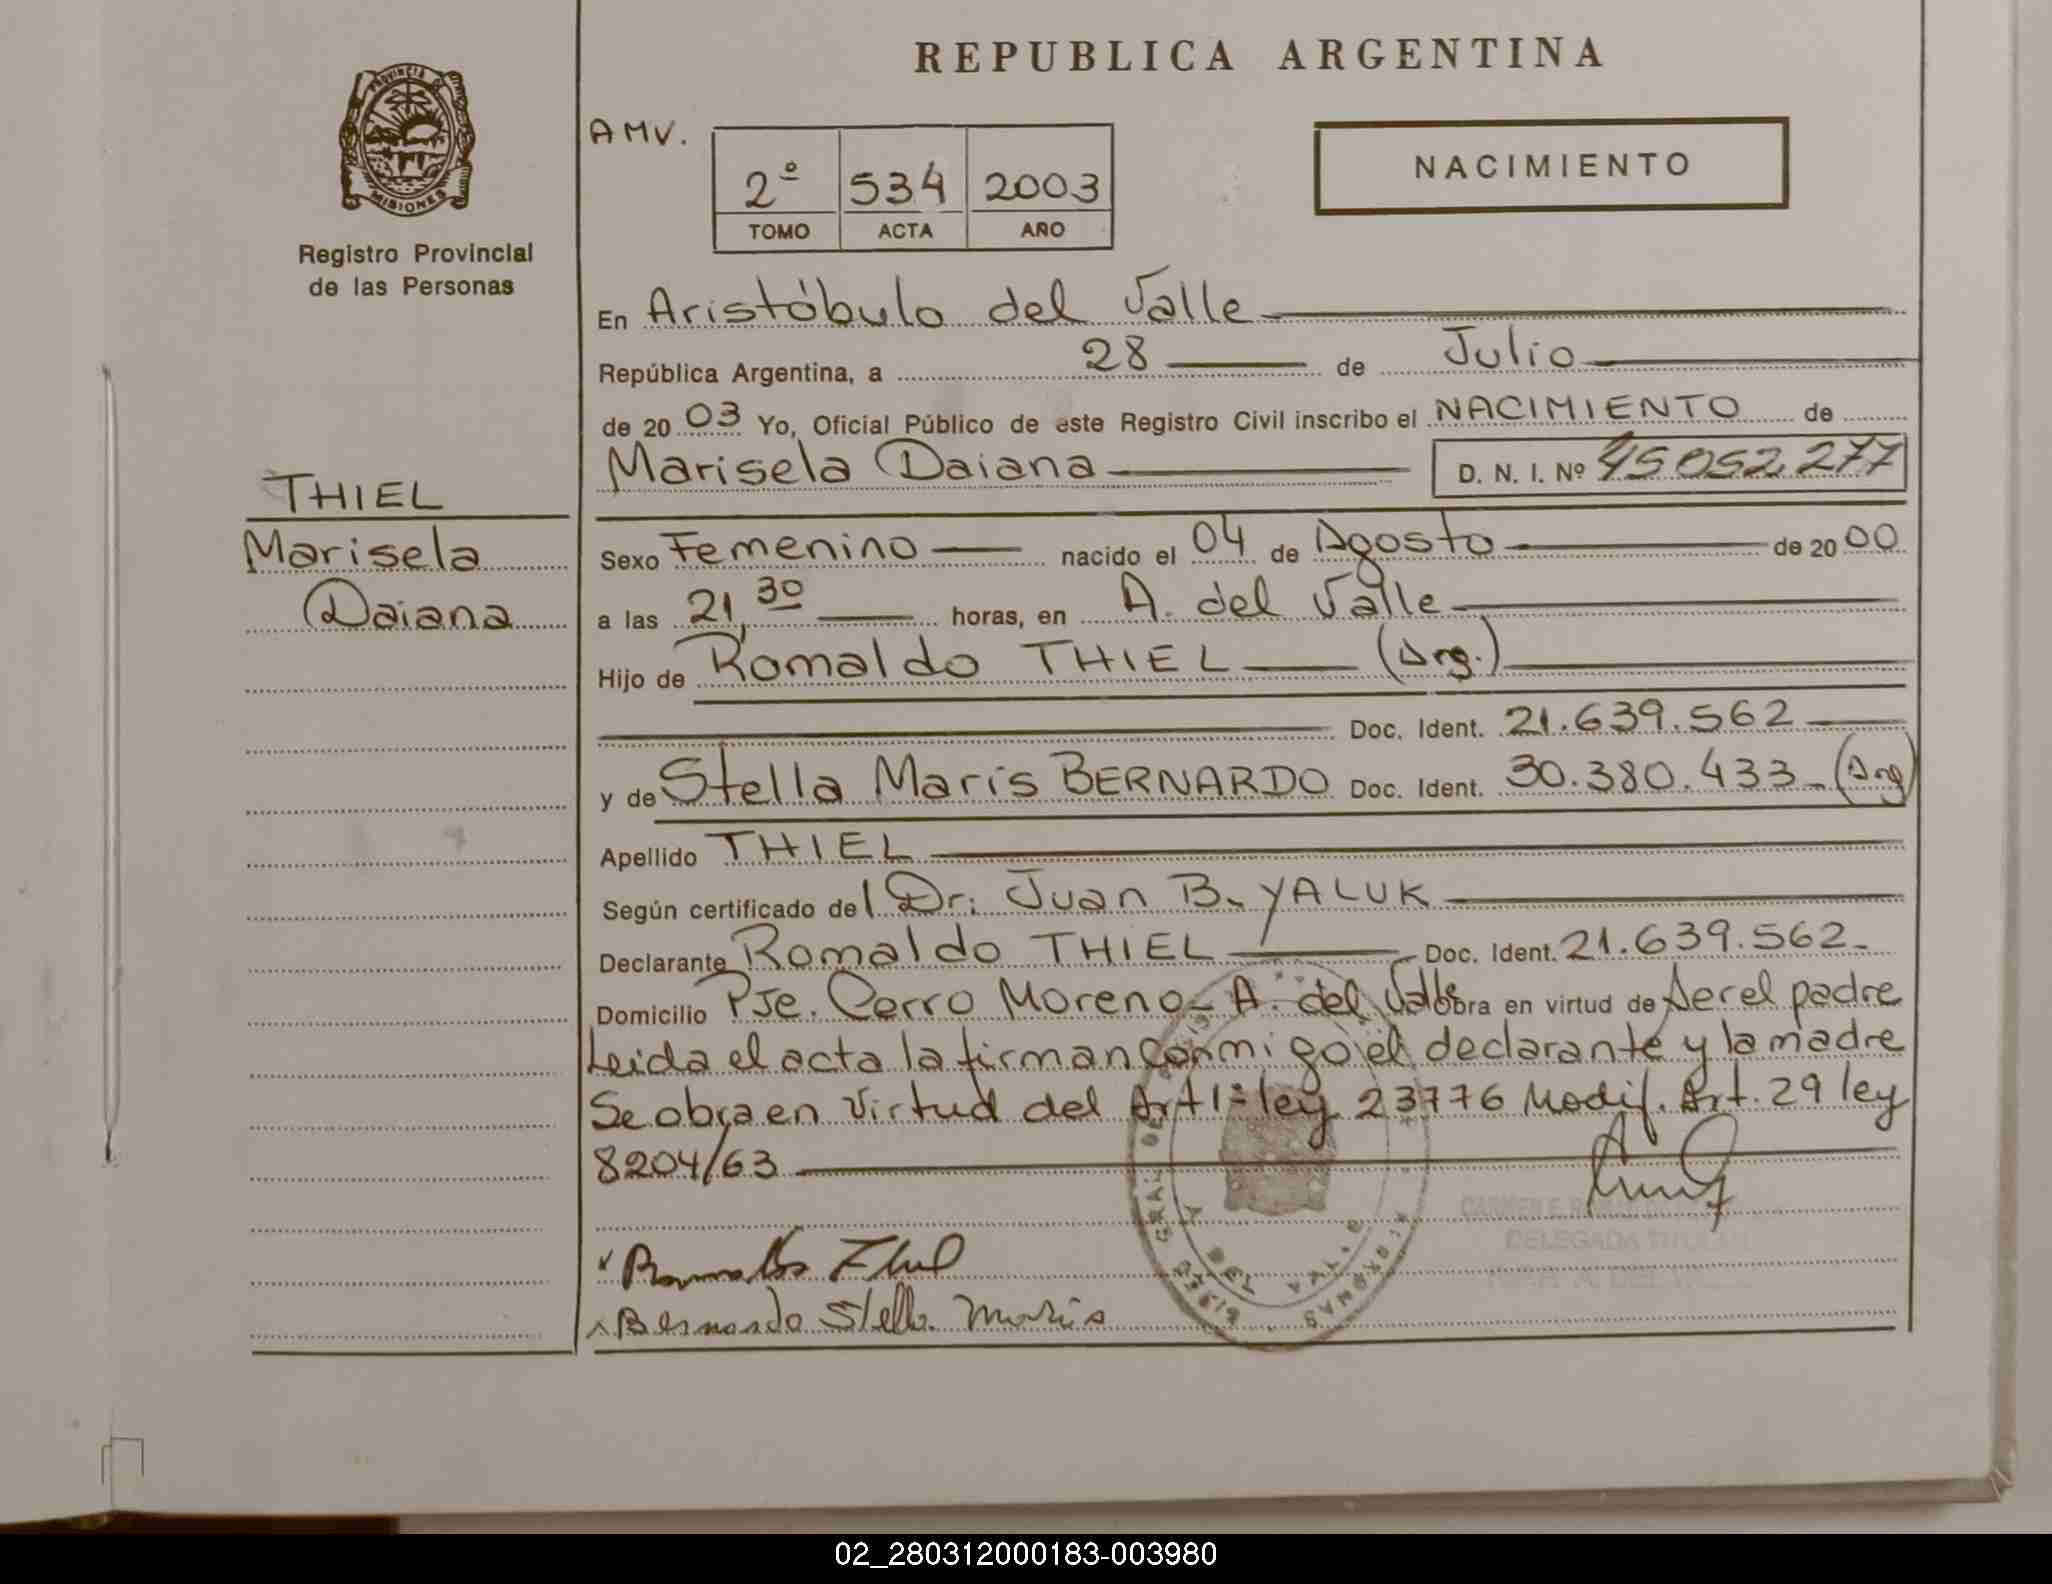 REPUBLICA ARGENTINA
PROVINCIA DE MISIONES
Registro Provincial
de las Personas
AMV.
2º 534 2003
TOMO ACTA AÑO
NACIMIENTO
En Aristóbulo del Valle
República Argentina, a 28 de Julio
de 2003 Yo, Oficial Público de este Registro Civil inscribo el NACIMIENTO de
Marisela Daiana D. N. I. Nº 45052277
THIEL
Marisela
Daiana
Sexo Femenino nacido el 04 de Agosto de 2000
a las 21,30 horas, en A. del Valle
Hijo de Romaldo THIEL (Arg.)
Doc. Ident. 21.639.562
y de Stella Maris BERNARDO Doc. Ident. 30.380.433 (Arg)
Apellido THIEL
Según certificado del Dr: Juan B. YALUK
Declarante Romaldo THIEL Doc. Ident. 21.639.562
Domicilio Pje. Cerro Moreno - A. del Valle obra en virtud de ser el padre
Leida el acta la firman conmigo el declarante y la madre
Se obra en virtud del Art 1º ley 23776 Modif. Art. 29 ley
8204/63
DELEGADA TITULAR
Romaldo Thiel
Bernardo Stella Maris
A DEL VALLE
02_280312000183-003980